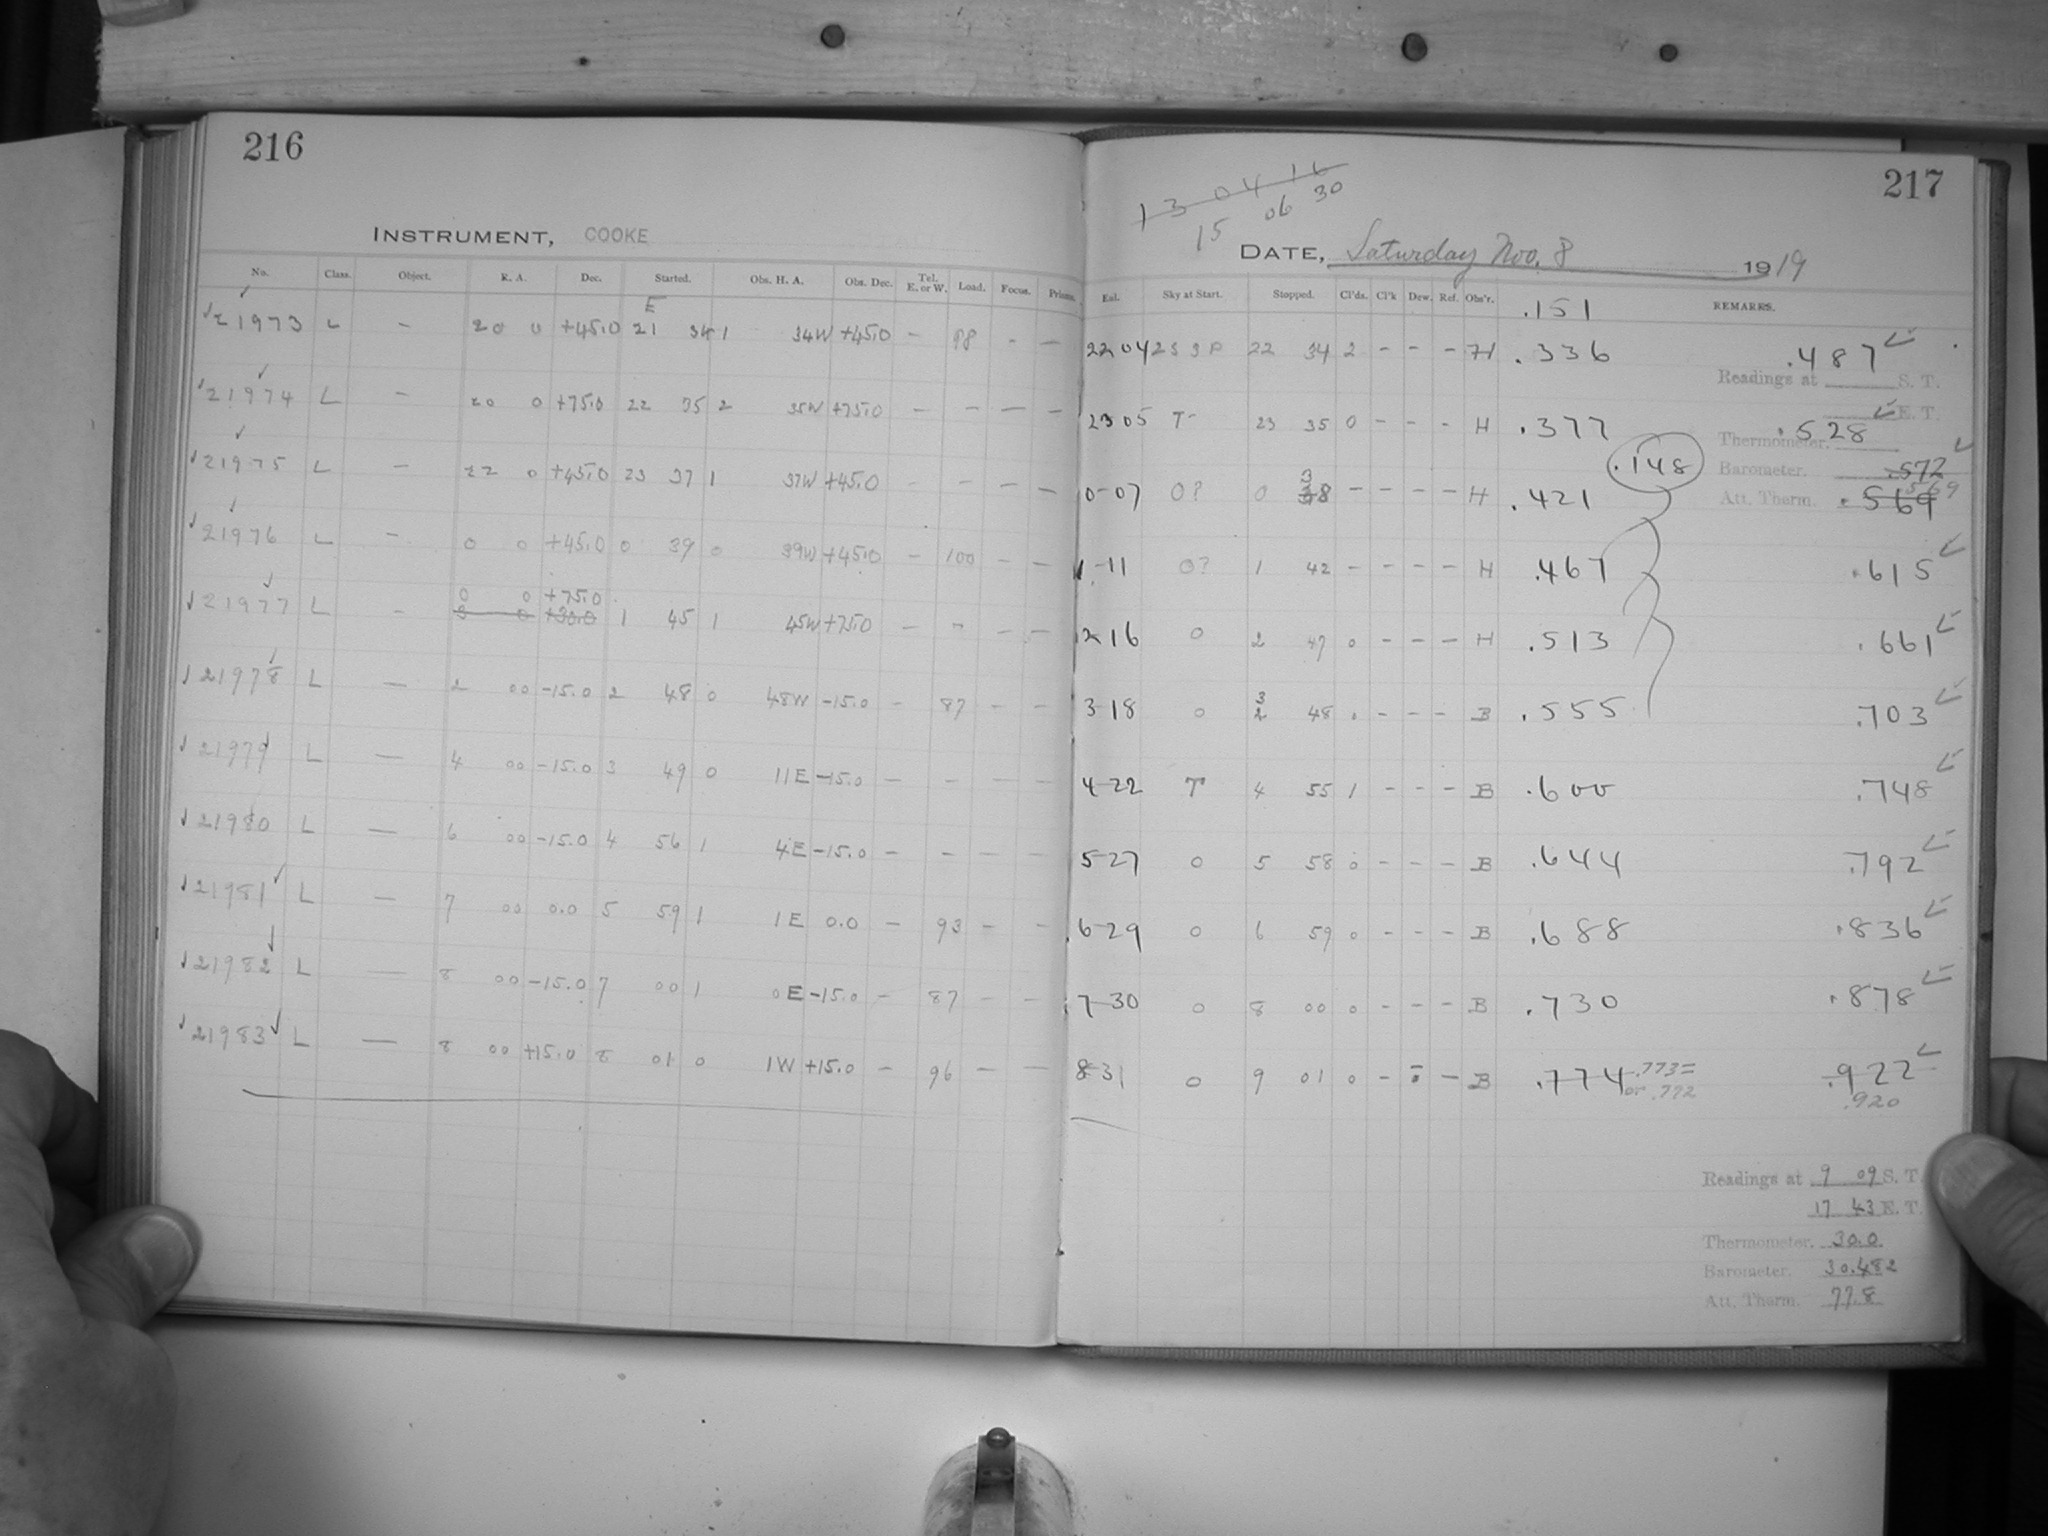 216
INSTRUMENT, COOKE
No. Class. Object. R. A. Dec. Started. Obs. H. A. Obs. Dec. Tel. E. or W. Load. Focus. Prisms.
E
21973 L - 20 0 +45.0 21 34 1 34W +45.0 - 98 - -
21974 L - 20 0 +75.0 22 35 2 35W +75.0 - - - -
21975 L - 22 0 +45.0 23 37 1 37W +45.0 - - - -
21976 L - 0 0 +45.0 0 39 0 39W +45.0 - 100 - -
0 0 +75.0
21977 L - 3 0 +30.0 1 45 1 45W +75.0 - - - -
21978 L - 2 00 -15.0 2 48 0 48W -15.0 - 87 - -
21979 L - 4 00 -15.0 3 49 0 11E -15.0 - - - -
21980 L - 6 00 -15.0 4 56 1 4E -15.0 - - - -
21981 L - 7 00 0.0 5 59 1 1E 0.0 - 93 - -
21982 L - 8 00 -15.0 7 00 1 0E -15.0 - 87 - -
21983 L - 8 00 +15.0 8 01 0 1W +15.0 - 96 - -
217
13 04 16
15 06 30
DATE, Saturday Nov. 8 1919
Sky at Start. Stopped. Cl'ds. Cl'k Dew. Ref. Obs'r. REMARKS.
.151
22 04 2S 3P 22 34 2 - - - H .336 .487
Readings at S. T.
E. T.
23 05 T- 23 35 0 - - - H .377 .528
Thermometer.
.148
Barometer. .572
3
0-07 0? 0 8 - - - - H .421 .569
Att. Therm. .569
1-11 0? 1 42 - - - - H .467 .615
2 16 0 2 47 0 - - - H .513 .661
3
3-18 0 2 48 . - - - B .555 .703
4-22 T 4 55 1 - - - B .600 .748
5-27 0 5 58 0 - - - B .644 .792
6-29 0 6 59 0 - - - B .688 .836
7-30 0 8 00 0 - - - B .730 .878
8-31 0 9 01 0 - - - B .774 .773= .922
or .772 .920
Readings at 9 09 S. T.
17 43 E. T.
Thermometer. 30.0
Barometer. 30.482
Att. Therm. 77.8